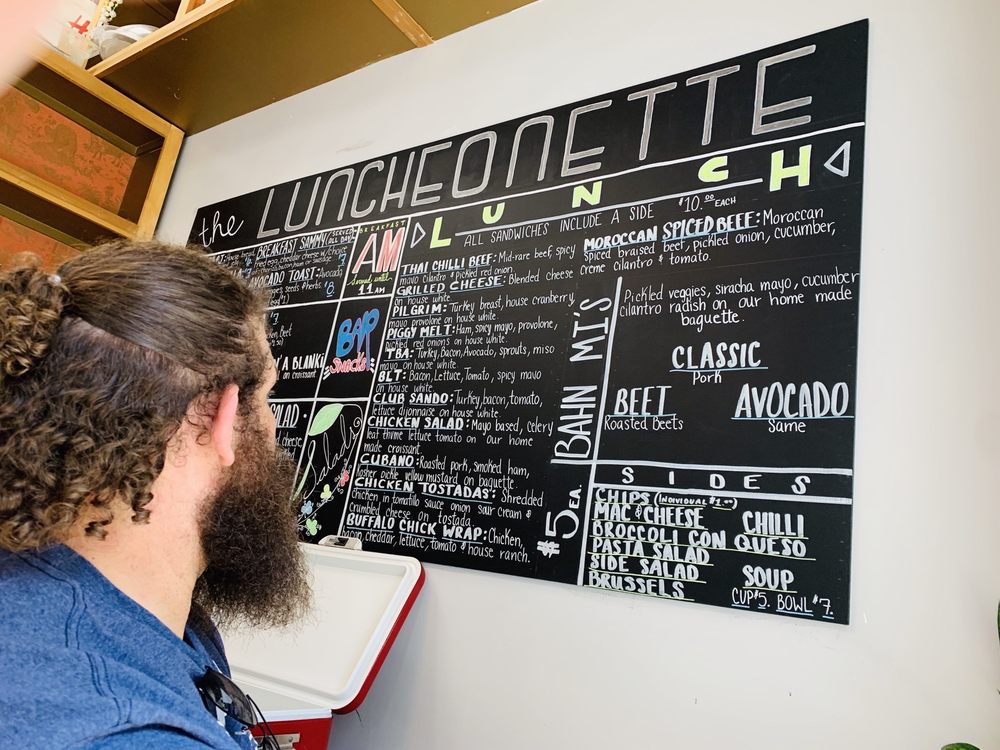 the LUNCHEONETTE
BREAKFAST SAMMY (SERVED ALL DAY)
fried egg, cheddar cheese w/choice
AVOCADO TOAST: Avocado,
seeds & herbs. $8.
on croissant
cheese
BREAKFAST
AM
Served until
11 AM
BAR
Snacks
Salads
LUNCH
ALL SANDWICHES INCLUDE A SIDE $10.00 EACH
THAI CHILLI BEEF: Mid-rare beef, spicy
mayo cilantro & pickled red onion.
GRILLED CHEESE: Blended cheese
on house white.
PILGRIM: Turkey breast, house cranberry,
mayo provolone on house white.
PIGGY MELT: Ham, spicy mayo, provolone,
pickled red onions on house white.
TBA: Turkey, Bacon, Avocado, sprouts, miso
mayo on house white.
BLT: Bacon, Lettuce, Tomato, spicy mayo
on house white.
CLUB SANDO: Turkey, bacon, tomato,
lettuce dijonnaise on house white.
CHICKEN SALAD: Mayo based, celery
leaf thyme lettuce tomato on our home
made croissant.
CUBANO: Roasted pork, smoked ham,
kosher pickle yellow mustard on baguette.
CHICKEN TOSTADAS: Shredded
chicken, in tomatillo sauce onion sour cream &
crumbled cheese on tostada.
BUFFALO CHICK WRAP: Chicken,
bacon, cheddar, lettuce, tomato & house ranch.
MOROCCAN SPICED BEEF: Moroccan
Spiced braised beef, pickled onion, cucumber,
creme cilantro & tomato.
BAHN MI'S
$5 EA.
Pickled veggies, siracha mayo, cucumber
cilantro radish on our home made
baguette.
CLASSIC
Pork
BEET
Roasted Beets
AVOCADO
Same
SIDES
CHIPS (INDIVIDUAL $1.00)
MAC & CHEESE
CHILLI
BROCCOLI CON QUESO
PASTA SALAD
SIDE SALAD
SOUP
BRUSSELS
CUP $5. BOWL $7.